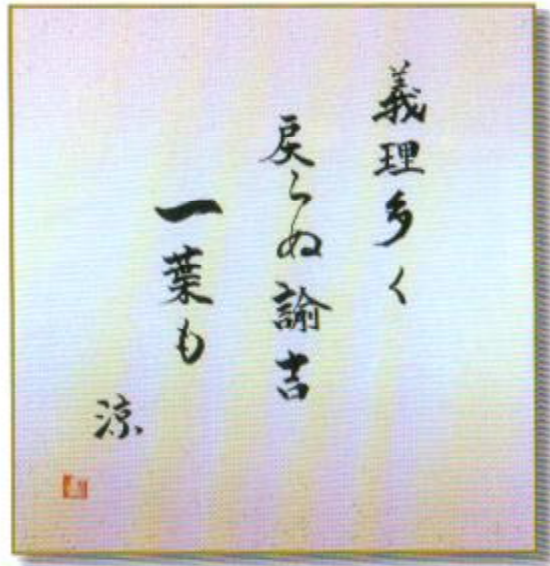 義理多く
戻らぬ諭吉
一葉も
涼